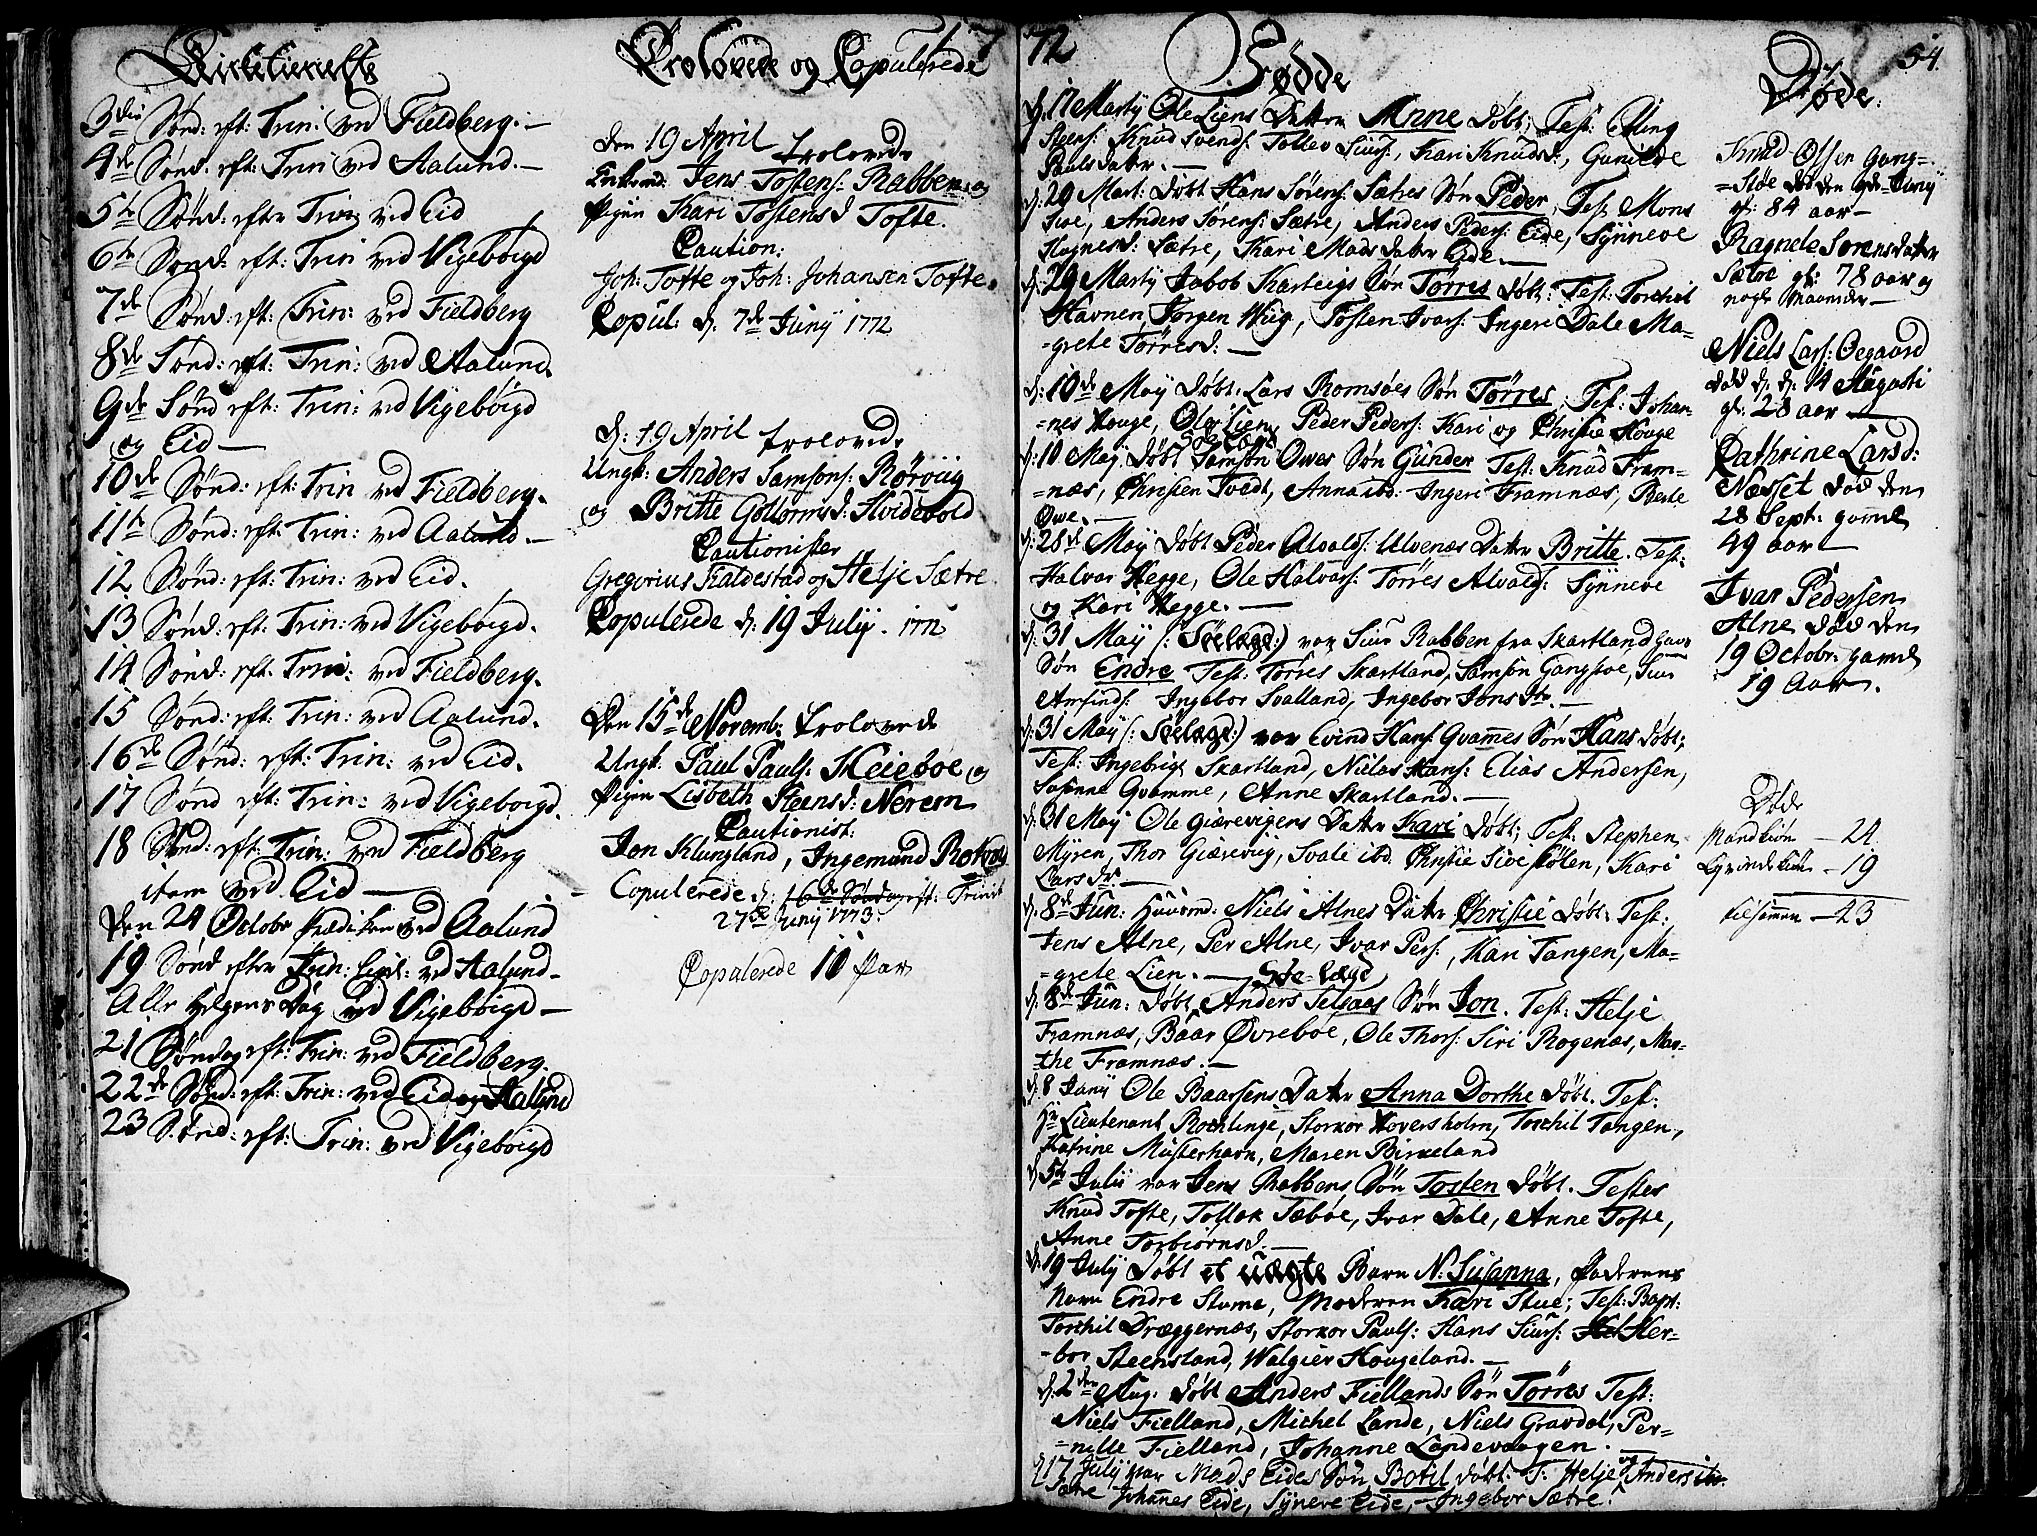 Kirketieneste
3die Sønd: eft: Trin: ved Fieldberg. —
4de Sønd: eft: Trin ved Aalund. —
5te Sønd: efter Trin: ved Eid
6te Sønd: eft: Trin ved Vigebøigd
7de Sønd: eft: Trin: ved Fieldberg
8de Sønd: eft: Trin: ved Aalund.
9de Sønd eft: Trin: ved Vigebøigd
og Eid —
10de Sønd: eft: Trin ved Fieldberg.
11te Sønd: eft: Trin: ved Aalund. —
12 Sønd: eft: Trin: ved Eid.
13 Sønd: eft: Trin: ved Vigebøigd.
14 Sønd: eft: Trin: ved Fieldberg.
15 Sønd: eft: Trin: ved Aalund.
16de Sønd: eft: Trin: ved Eid.
17 Sønd eft: Trin: ved Vigebøigd.
18 Sønd: eft: Trin: ved Fieldberg
item ved Eid —
Den 24 Octobr Prædiken ved Aalund
19 Sønd efter Trin: ved Aalund —
Alle Helgens Dag ved Vigebøigd —
21 Søndag eft: Trin: ved Fieldberg.
22de Sønd: eft: Trin: ved Eid og Aalund
23 Sønd: eft: Trin: ved Vigebøigd
Trolovede og Copulerede 17
Den 19 April trolovede
Enkemd: Jens Tostens: Rabben og
Pigen Kari Tostensd Tofte.
Caution:
Joh: Tofte og Joh: Johansen Tofte.
Copul: d. 7de Junÿ 1772
d: 19 April trolovede
Ungk: Anders Samsons: Rørviig
og Britte Gottormsd: Hvidebold
Cautionister
Gregorius Kaldestad og Helje Sætre.
Copulerede d: 19 Julÿ. 1772
Den 15de Novemb: trolovede
Ungk. Paul Pauls: Meieboe og
Pigen Lisbeth Steensd: Nerem
Cautionist:
Jon Klungland, Ingemund
Copulerede d: 16de Søndag eft: Trinit
27de Junÿ 1773.
Copulerede 10 Par
72 Fødde
d. 17 Martÿ Ole Liens Datter Anne døbt; Test:
Steens: Knud Svends: Tollev Siurs:, Kari Knudsd:, Gunilde
Pauls datr. —
d. 29 Mart: døbt Hans Sørens: Sætres Søn Peder, Test. Mons
Anders Sørens: Sætre, Anders Peders: Eide, Synneve
Hognesd: Sætre, Kari Mads datter Eide. —
d. 29 Martÿ Jakob Kartveigs Søn Tørres døbt: Test: Torchil
Havnen, Jørgen Wiig, Tosten Ivars: Ingeri Dale Ma=
=grete Tørresd: —
d: 10de Maÿ døbt. Lars Romsøes Søn Tørres, Test: Johan
=nes Houge, Ole Lien, Peder Peders: Kari og Christie Houge
d: 10 Maÿ døbt Samson Owes Søn Gunder Test: Knud Fram=
=næs, Christen Tvedt, Anna ibd: Ingeri Framnæs, Berte
Owe. —
d: 28de Maÿ døbt Peder Alvalds: Ulvenæs Datter Britte. Test:
Halvar Hegge, Ole Halvars: Tørres Alvalds: Synneve
og Kari Hegge. —
d: 31 Maÿ (: Søelægd:) var Siur Rabben fra Skartland
Søn Endre Test: Tørres Skartland, Samson Gangstoe, Siur
Amfinds: Ingebor Svalland, Ingebor Jonsdtr. —
d: 31 Maÿ (: Søelægd:) var Evind Hans: Qvamnes Søn Hans døbt;
Test: Ingebrigt Skartland, Niclas Hans: Elias Andersen,
Susanne Qvamme, Anne Skartland. —
d: 31 Maÿ Ole Giærevigens Datter Kari døbt; Test: Stephen
Mÿren, Thor Giærevig, Svale ibd. Christie Kari
Lars dr. —
d: 8de Jun: Huusmd: Niels Alnes Datter Christie døbt; Test:
Jens Alne, Per Alne, Ivar Pers:, Kari Tangen, Ma=
=grete Lien. — Søe-lægd
d: 8de Jun: døbt Anders Selsaas Søn Jon. Test: Helje
Framnæs, Baar Øvrebøe, Ole Thors: Siri Rogenæs, Mar=
=the Framnæs. —
d. 8 Junÿ Ole Baarsens Datter Anna Dorthe døbt. Test:
Hr Lieutenant Rochlinge, Storkor Hoversholm, Torchil Tangen,
Katrine Musterhavn, Maren Birkeland
d. 5te Julii var Jens Rabbens Søn Tosten døbt. Testes
Knud Tofte, Tollak Sæbøe, Ivar Dale, Anne Tofte,
Anne Torbiørnsd. —
d. 19 Julÿ døbt et uægte Barn N: Susanna, Faderens
Navn Endre Stumo, Moderen Kari Stue; Test: Bapt:
Torchil Dræggernæs, Storkor Pauls: Hans Siurs: Her=
=bor Steensland, Walgier Hougeland. —
d. 2den Aug. døbt Anders Fiellands Søn Tørres Test:
Niels Fielland, Michel Lande, Niels Gravdal, Per=
=nille Fielland, Johanne Landevaagen.
d 17 Julÿ var Mads Eides Søn Botil døbt. T: Helje og Anders ibd.
Sætre Johannes Eide, Synneve Eide, Ingebor Sætre.
54.
Døde:
Knud Olsen Gang=
=støe død den Junÿ
gl: 84 aar —
Ragnele Sørensdatter
Sætre gl: 78 aar og
nogle Maaneder —
Niels Lars: Øegaard
død d. 14 Augusti
gl: 28 aar —
Cathrine Larsd:
Næsset død den
28 Sept: gammel
49 aar —
Ivar Pedersen
Alne død den
19 Octobr: gammel
19 Aar.
Døde
Mandkiøn — 24
Qvindekiøn — 19
tilsammen — 43